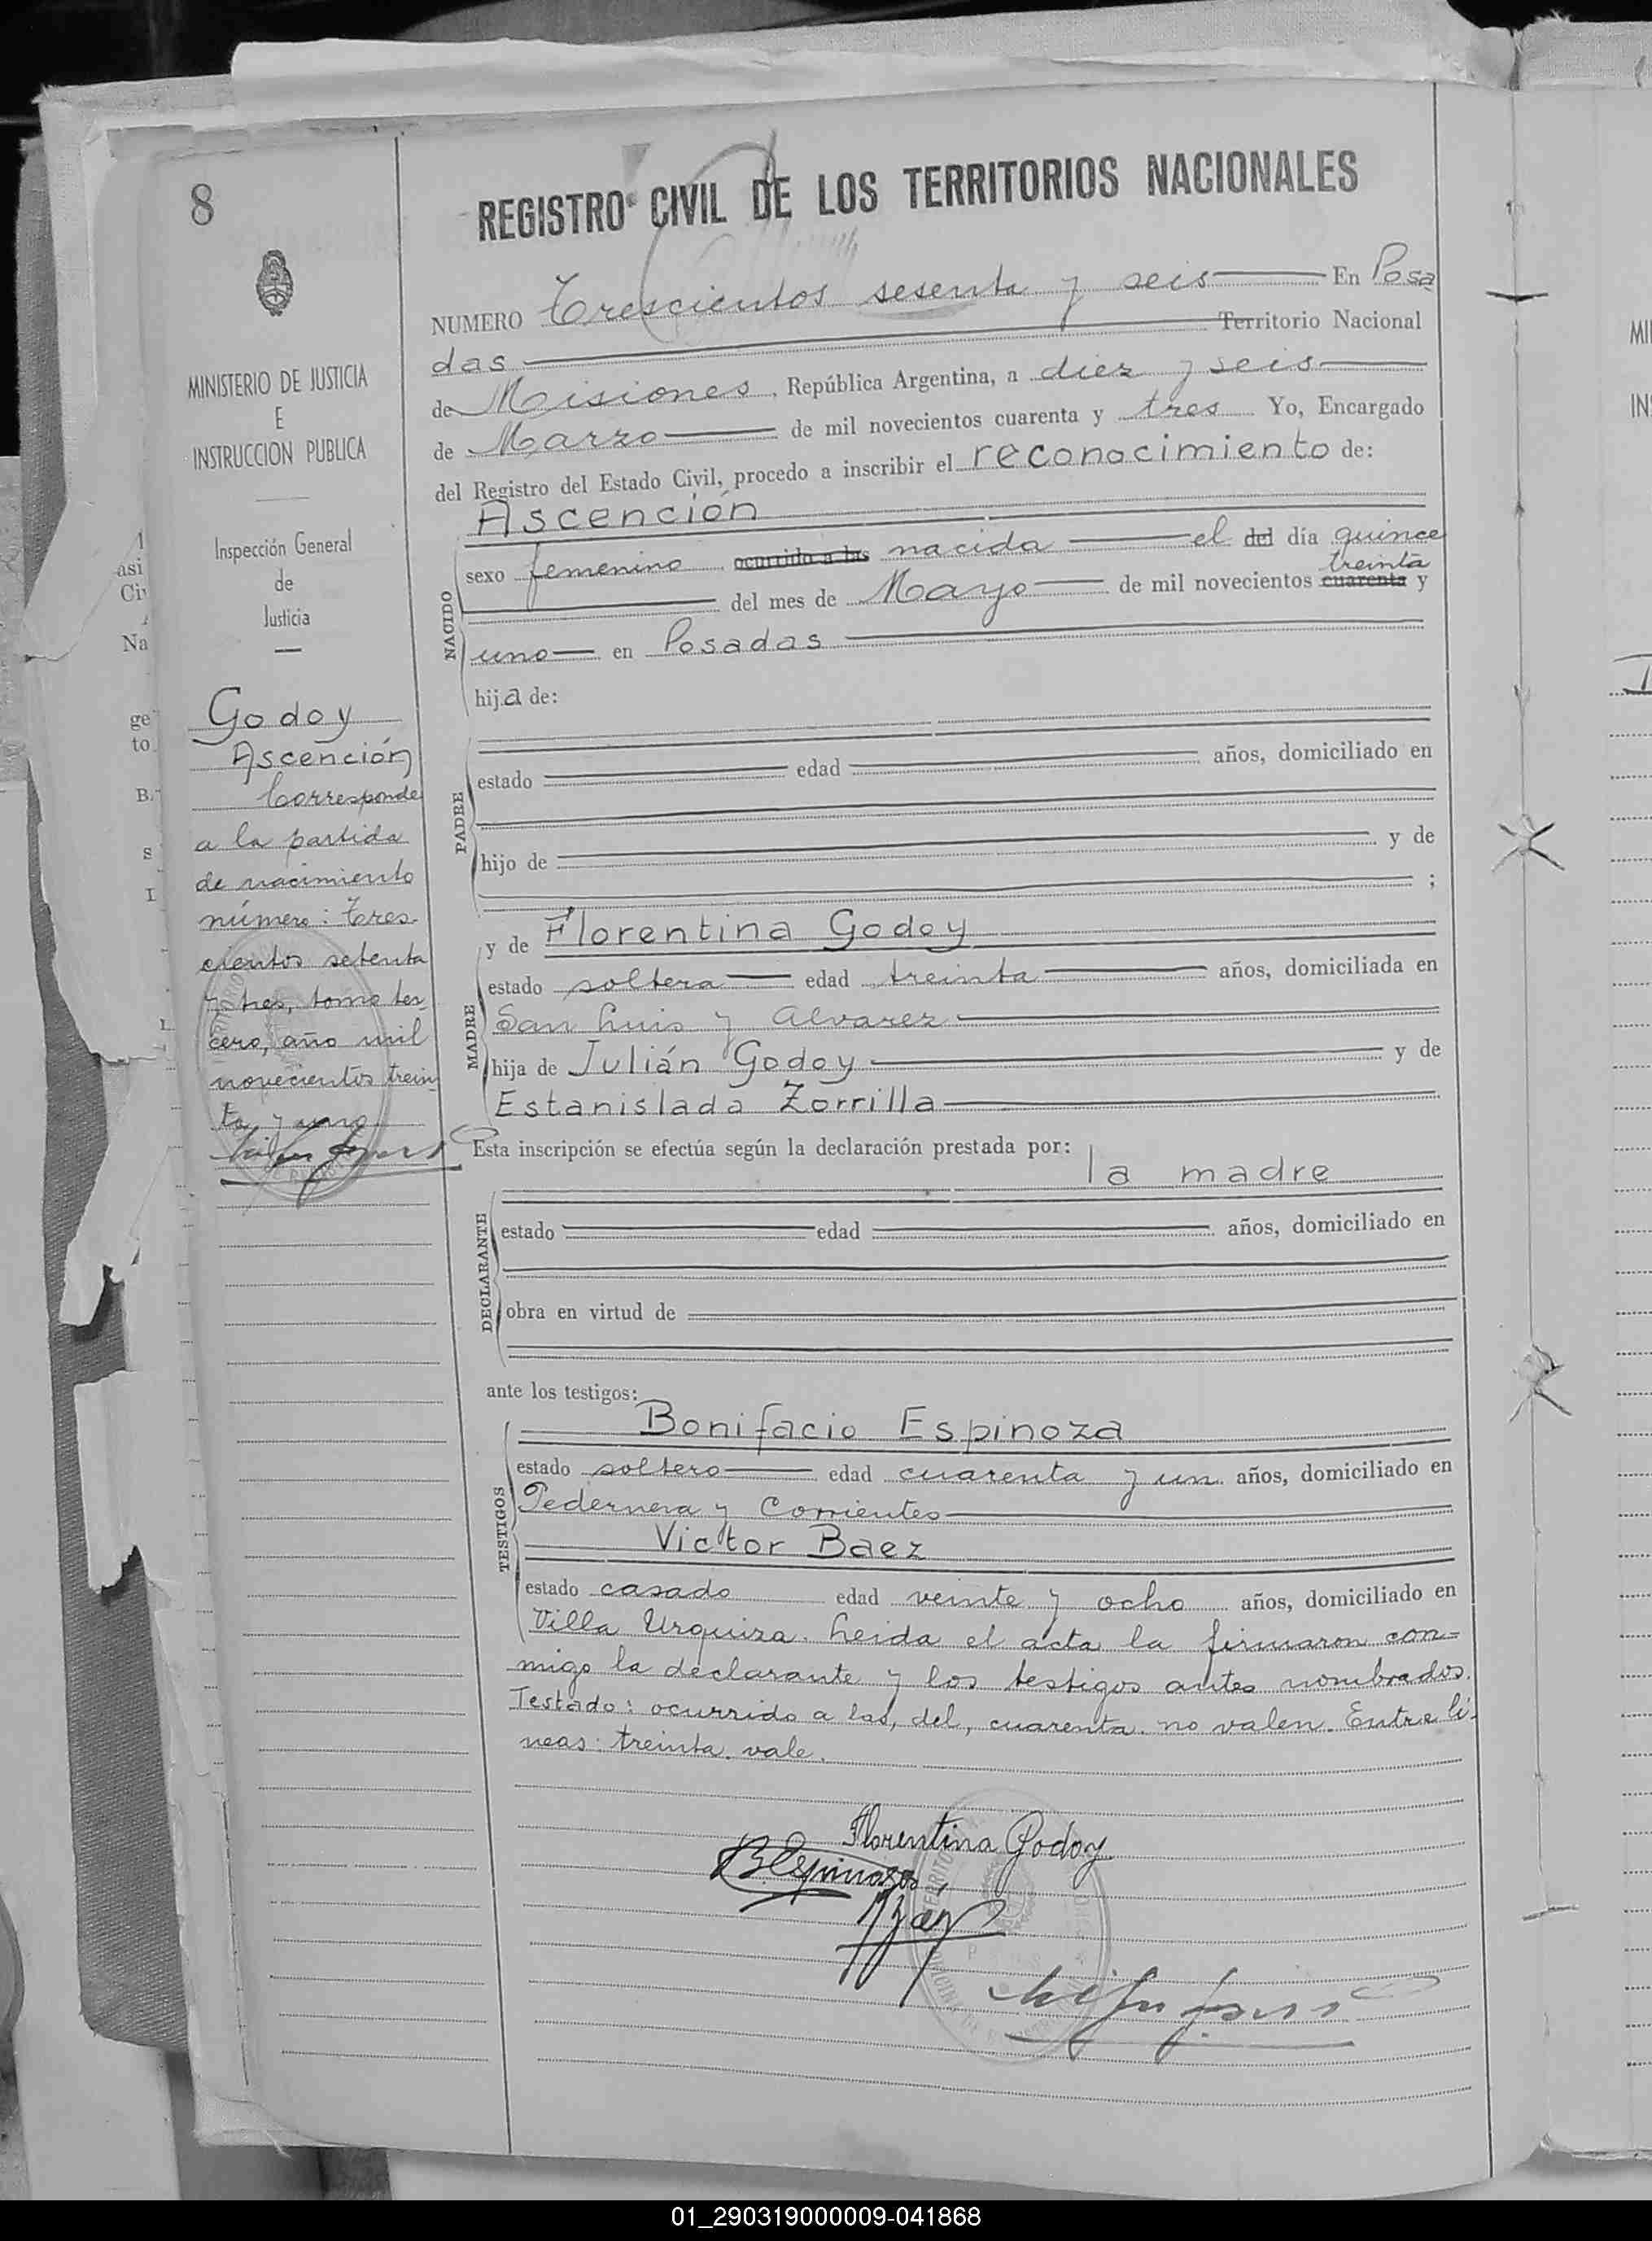 8
REGISTRO CIVIL DE LOS TERRITORIOS NACIONALES
MINISTERIO DE JUSTICIA
E
INSTRUCCION PUBLICA
Inspección General
de
Justicia
Godoy
Ascención
Corresponde
a la partida
de nacimiento
número: tres-
cientos setenta
y tres, tomo ter-
cero, año mil
novecientos trein
ta y uno
NUMERO Trescientos sesenta y seis En Posa
das Territorio Nacional
de Misiones, República Argentina, a diez y seis
de Marzo de mil novecientos cuarenta y tres Yo, Encargado
del Registro del Estado Civil, procedo a inscribir el reconocimiento de:
Ascención
NACIDO
sexo femenino ocurrido a las nacida el del día quince
treinta
del mes de Mayo de mil novecientos cuarenta y
uno en Posadas
hija de:
PADRE
estado edad años, domiciliado en
hijo de y de
;
y de Florentina Godoy
MADRE
estado soltera edad treinta años, domiciliada en
San Luis y Alvarez
hija de Julián Godoy y de
Estanislada Zorrilla
Esta inscripción se efectúa según la declaración prestada por:
la madre
DECLARANTE
estado edad años, domiciliado en
obra en virtud de
ante los testigos:
Bonifacio Espinoza
TESTIGOS
estado soltero edad cuarenta y un años, domiciliado en
Pedernera y Corrientes
Victor Baez
estado casado edad veinte y ocho años, domiciliado en
Villa Urquiza. Leida el acta la firmaron con=
migo la declarante y los testigos antes nombrados.
Testado: ocurrido a las, del, cuarenta. no valen. Entre lí-
neas: treinta. vale.
Florentina Godoy
B Espinoza
VBaez
01_290319000009-041868